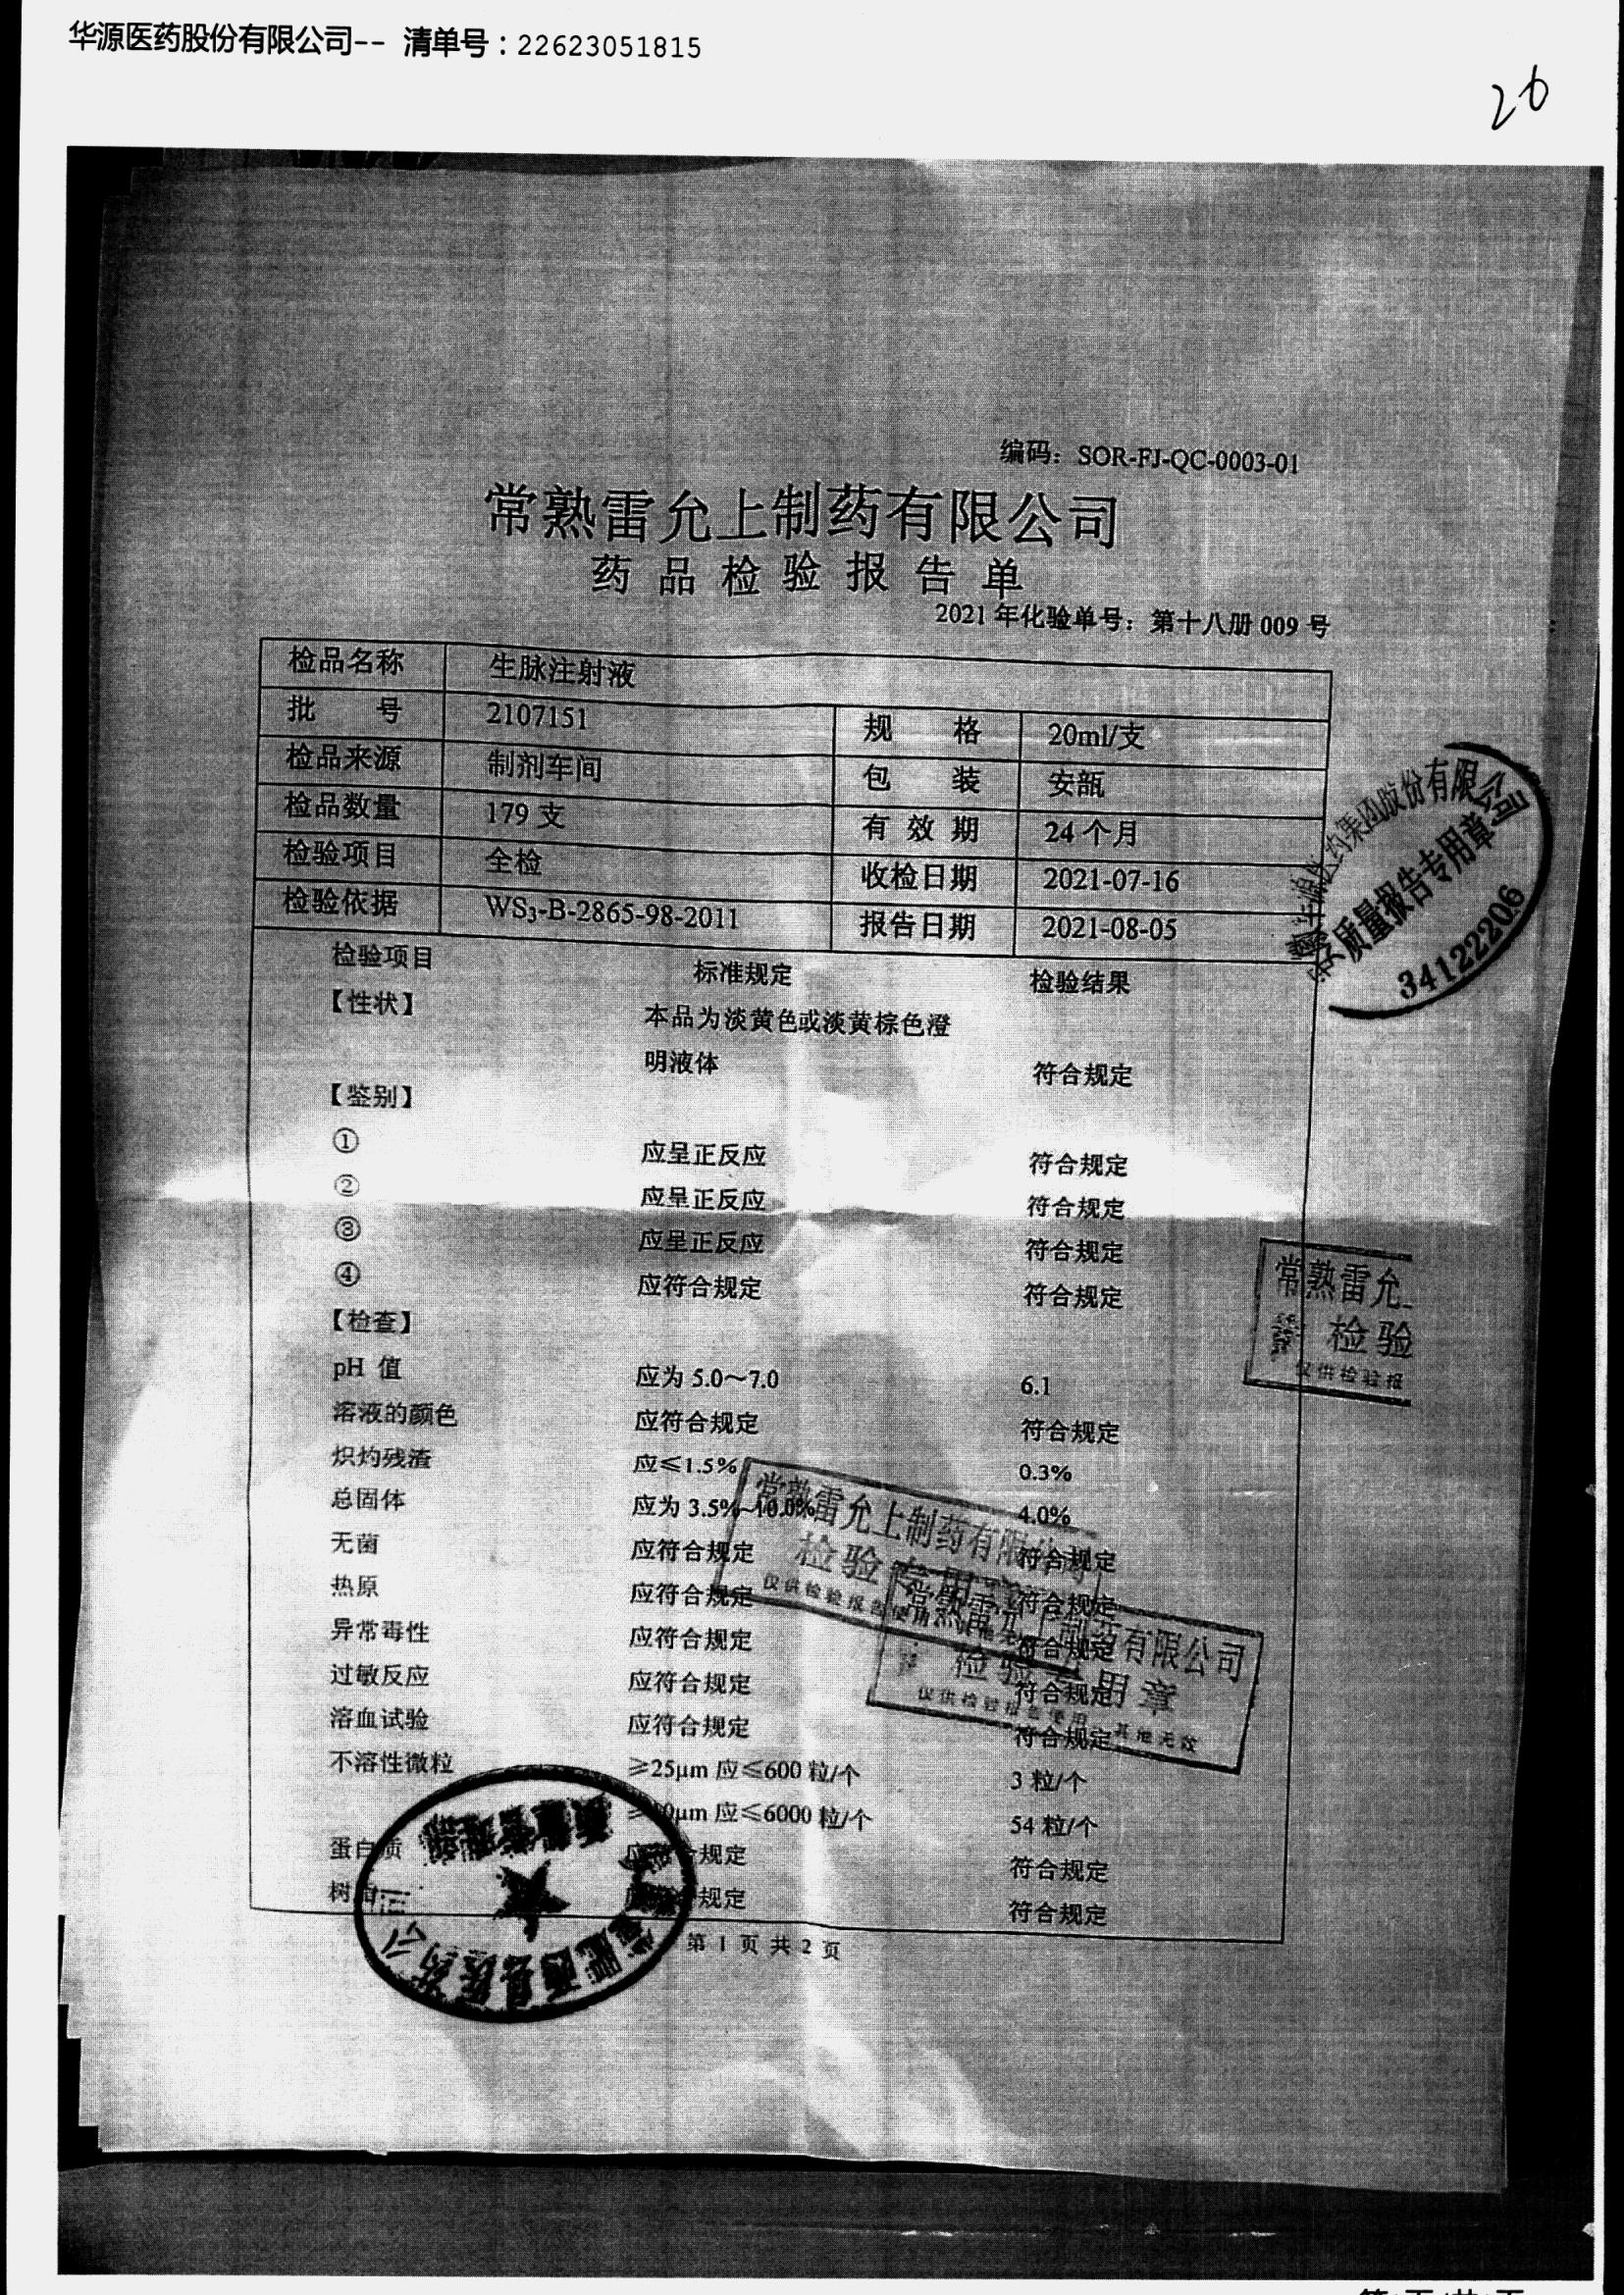 华源医药股份有限公司-- 清单号：22623051815
26
编码：SOR-FJ-QC-0003-01
常熟雷允上制药有限公司
药品检验报告单
2021 年化验单号：第十八册 009 号
检品名称 生脉注射液
批 号 2107151 规 格 20ml/支
检品来源 制剂车间 包 装 安瓿
检品数量 179 支 有效期 24 个月
检验项目 全检 收检日期 2021-07-16
检验依据 WS₃-B-2865-98-2011 报告日期 2021-08-05
检验项目 标准规定 检验结果
【性状】 本品为淡黄色或淡黄棕色澄
明液体 符合规定
【鉴别】
① 应呈正反应 符合规定
② 应呈正反应 符合规定
③ 应呈正反应 符合规定
④ 应符合规定 符合规定
【检查】
pH 值 应为 5.0～7.0 6.1
溶液的颜色 应符合规定 符合规定
炽灼残渣 应≤1.5% 0.3%
总固体 应为 3.5%~10.0% 4.0%
无菌 应符合规定 符合规定
热原 应符合规定 符合规定
异常毒性 应符合规定 符合规定
过敏反应 应符合规定 符合规定
溶血试验 应符合规定 符合规定
不溶性微粒 ≥25μm 应≤600 粒/个 3 粒/个
0μm 应≤6000 粒/个 54 粒/个
蛋白质 规定 符合规定
树 规定 符合规定
第 1 页 共 2 页
药集团股份有限公司
质量报告专用章
34122206
常熟雷允
检验
仅供检验报
常熟雷允上制药有限
检验专用
仅供检验报告使用
制药有限公司
检验专用章
仅供检验报告使用 其他无效
质量管理部